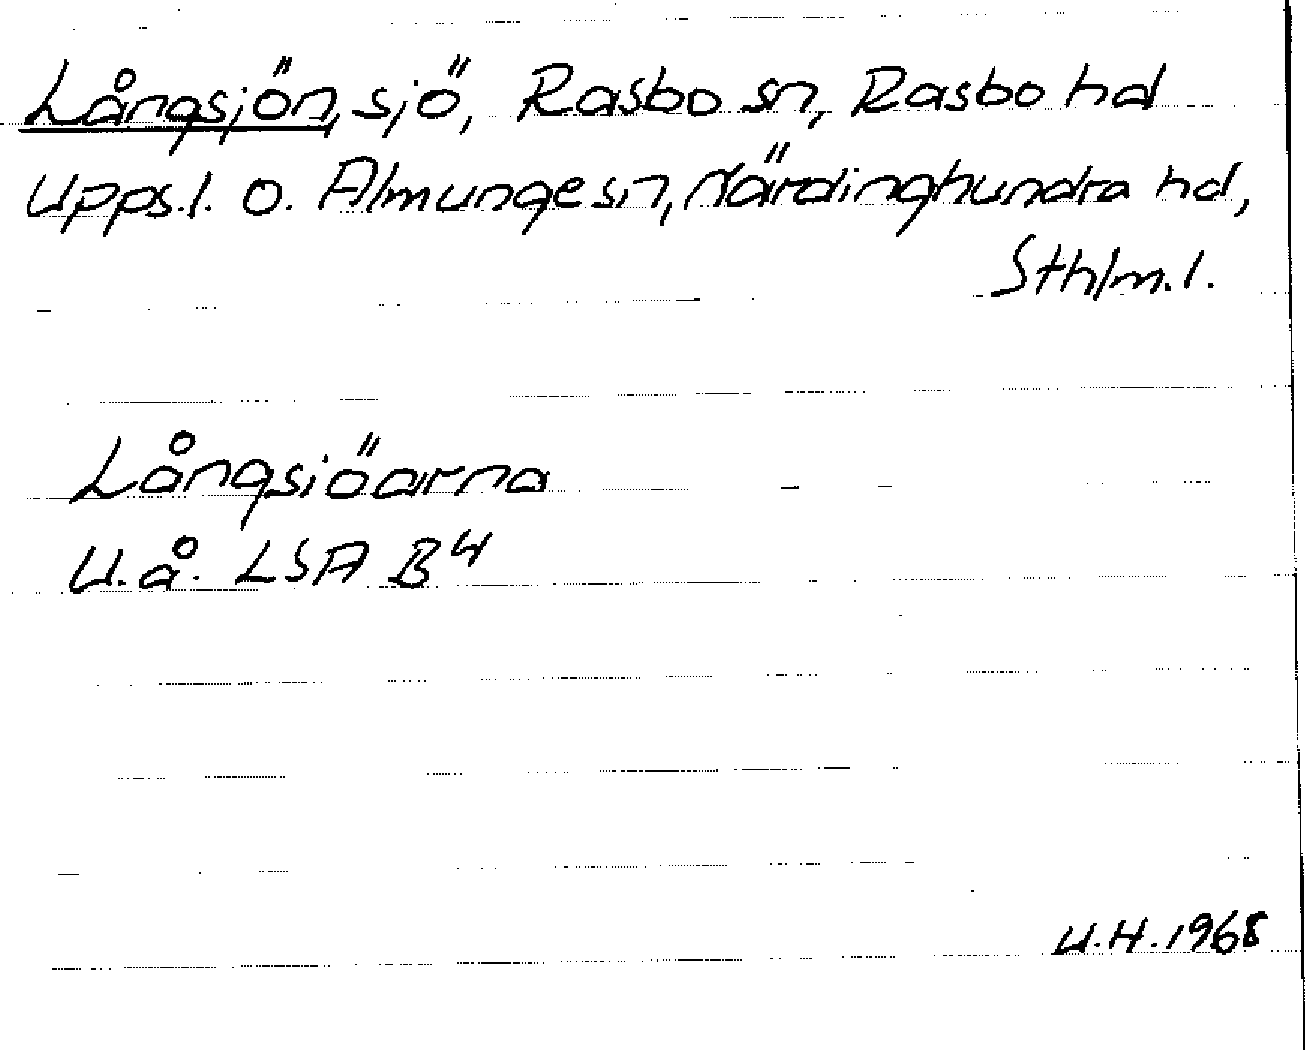 Långsjön, sjö, Rasbo sn, Rasbo hd
Upps.l. o. Almunge sn, Närdinghundra hd,
Sthlm.l.
Långsiöarna
U.å. LSA B4
U.H. 1968